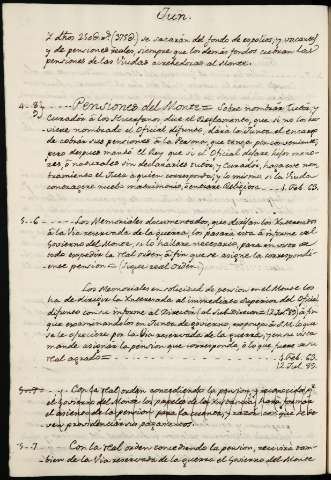 Jun.
y dhos 250 @ r.s (375 @) se sacarán del fondo de espolios, y vacantes
y de pensiones reales, siempre que los demás fondos cubran las
pensiones de las Viudas acreedoras al Monte.
4 - 84 ..... Pensiones del Monte = Sobre nombrar tutor y
Curador á los Huerfanos dice el Reglamento, que si no los hu-
viese nombrado el Oficial difunto, dará la Junta el encargo
de cobrar sus pensiones á la Persona, que tenga por conveniente,
pero despues manda el Rey que si el Oficial dejare hijos meno-
res, ó naturales sin declararles tutor, y Curador, haga su nom-
bramiento el Juez a quien corresponda; y lo mismo si la Viuda
contragere nuevo matrimonio, ó entrare Religiosa. ... 1. Feb. 63.
5 - 6 ..... Los Memoriales documentados, que dirijan los Interesados
á la Via reservada de la guerra, los pasará esta á informe del
Gobierno del Monte, si lo hallare necesario, para en vista de
todo expedir la real orden, á fin que se asigne la correspondi-
ente pension = (Sigue real Orden)
Los Memoriales en solicitud de pension en el Monte los
ha de dirigir la Interesada al immediato Superior del Oficial
difunto con su informe al Director (al SubDirector = 12 Jul. 89) á fin
que examinandolo en Junta de govierno, exponga á S. M. lo que
se le ofreciere por la Via reservada de la guerra, y en su vista
mande asignar la pension que corresponda, ó lo que fuere su
real agrado = - - - - - - - 4. Feb. 63.
12 Jul. 89.
5 - 7 ..... Con la real orden concediendo la pension, y reconocidos por
el Gobierno del Monte los papeles de la Instancia, hará formar
el asiento de la pension para la cuenta, y razon con que se de-
ven providenciar los pagamentos.
5 - 7. Con la real orden concediendo la pension, recivirá tam-
bien de la Via reservada de la guerra el Gobierno del Monte